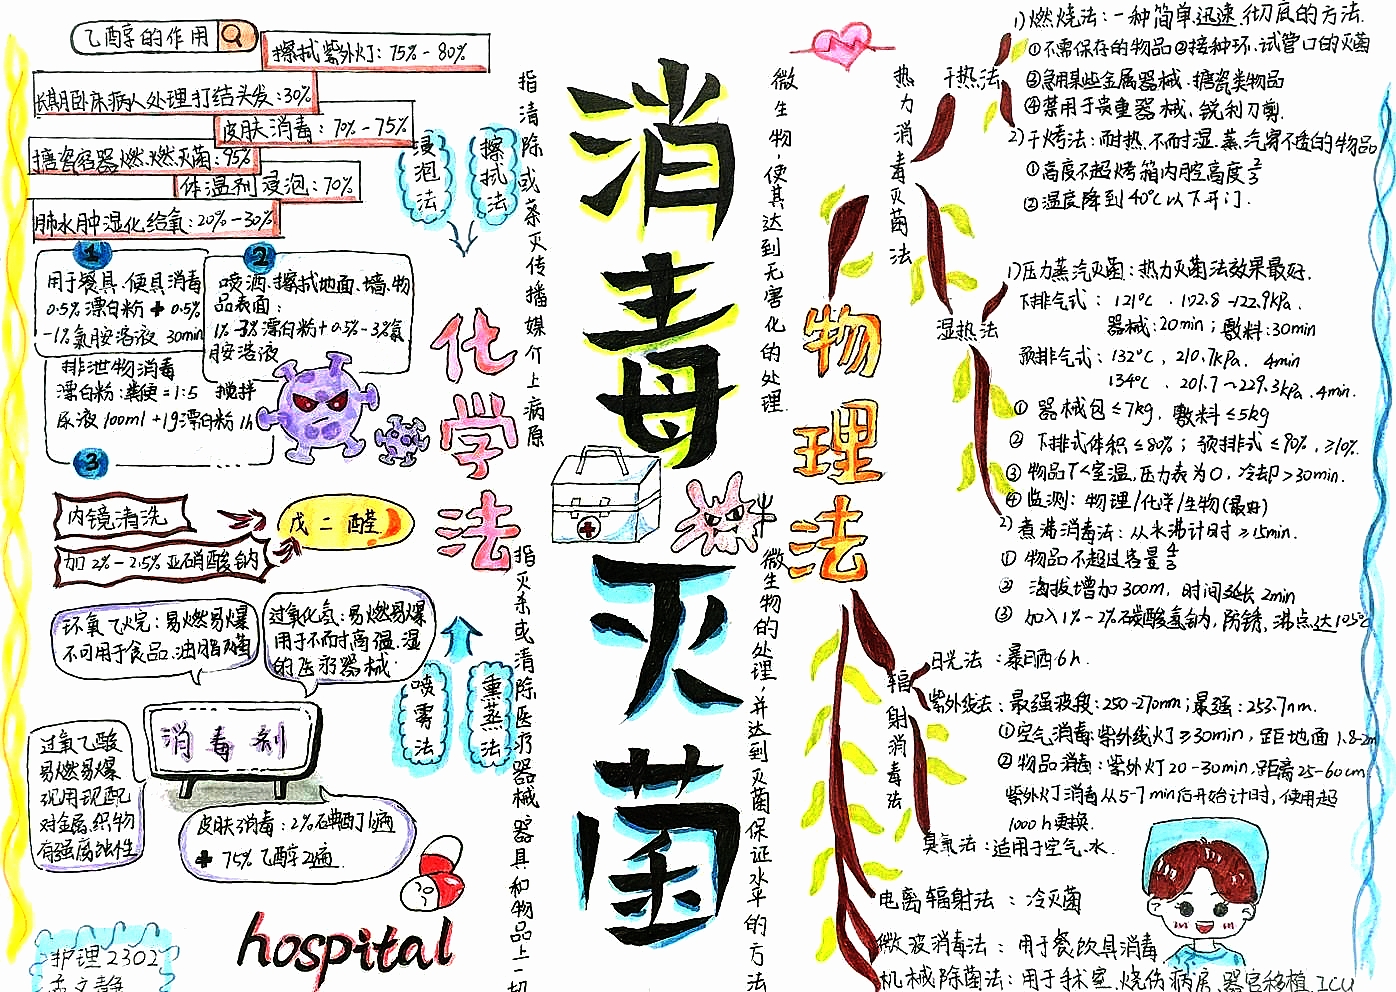 乙醇的作用
擦拭紫外灯：75%-80%
长期卧床病人处理打结头发：30%
皮肤消毒：70%-75%
搪瓷容器燃烧灭菌：95%
体温剂浸泡：70%
肺水肿湿化给氧：20%-30%
1
用于餐具、便具消毒
0.5%漂白粉+0.5%
-1%氯胺溶液 30min
2
喷洒、擦拭地面、墙、物
品表面：
1%-3%漂白粉+0.5%-3%氯
胺溶液
排泄物消毒
漂白粉：粪便=1:5 搅拌
尿液100ml+1g漂白粉1h
3
内镜清洗
加2%-2.5%亚硝酸钠
戊二醛
环氧乙烷：易燃易爆
不可用于食品、油脂灭菌
过氧化氢：易燃易爆
用于不耐高温、湿
的医疗器械.
消毒剂
过氧乙酸
易燃易爆
现用现配
对金属、织物
有强腐蚀性
皮肤消毒：2%碘酊1遍
+75%乙醇2遍
hospital
护理2302
浸泡法
擦拭法
化学法
喷雾法
熏蒸法
指清除或杀灭传播媒介上病原
微生物，使其达到无害化的处理.
消毒
灭菌
指灭杀或清除医疗器械、器具和物品上一切
微生物的处理，并达到灭菌保证水平的方法
物理法
热力消毒灭菌法
干热法
1)燃烧法：一种简单、迅速、彻底的方法.
①不需保存的物品②接种环、试管口的灭菌
③急用某些金属器械、搪瓷类物品
④禁用于贵重器械、锐利刀剪.
2)干烤法：耐热、不耐湿、蒸汽穿不透的物品
①高度不超烤箱内腔高度2/3
②温度降到40℃以下开门.
湿热法
1)压力蒸汽灭菌：热力灭菌法效果最好.
下排气式：121℃、102.8-122.9kPa.
器械：20min；敷料：30min
预排气式：132℃、210.7kPa、4min
134℃、201.7~229.3kPa、4min.
① 器械包≤7kg，敷料≤5kg
② 下排式体积≤80%；预排式≤90%，≥10%.
③ 物品T<室温、压力表为0，冷却>30min.
④ 监测：物理/化学/生物(最好)
2)煮沸消毒法：从水沸计时≥15min.
① 物品不超过容量3/4
② 海拔增加300m，时间延长2min
③ 加入1%-2%碳酸氢钠，防锈、沸点达105℃
辐射消毒法
日光法：暴晒6h.
紫外线法：最强波段：250-270nm；最强：253.7nm.
①空气消毒：紫外线灯≥30min，距地面1.8-2m
②物品消毒：紫外灯20-30min、距离25-60cm
紫外灯消毒从5-7min后开始计时，使用超
1000h更换.
臭氧法：适用于空气、水.
电离辐射法：冷灭菌
微波消毒法：用于餐饮具消毒
机械除菌法：用于手术室、烧伤病房、器官移植、ICU